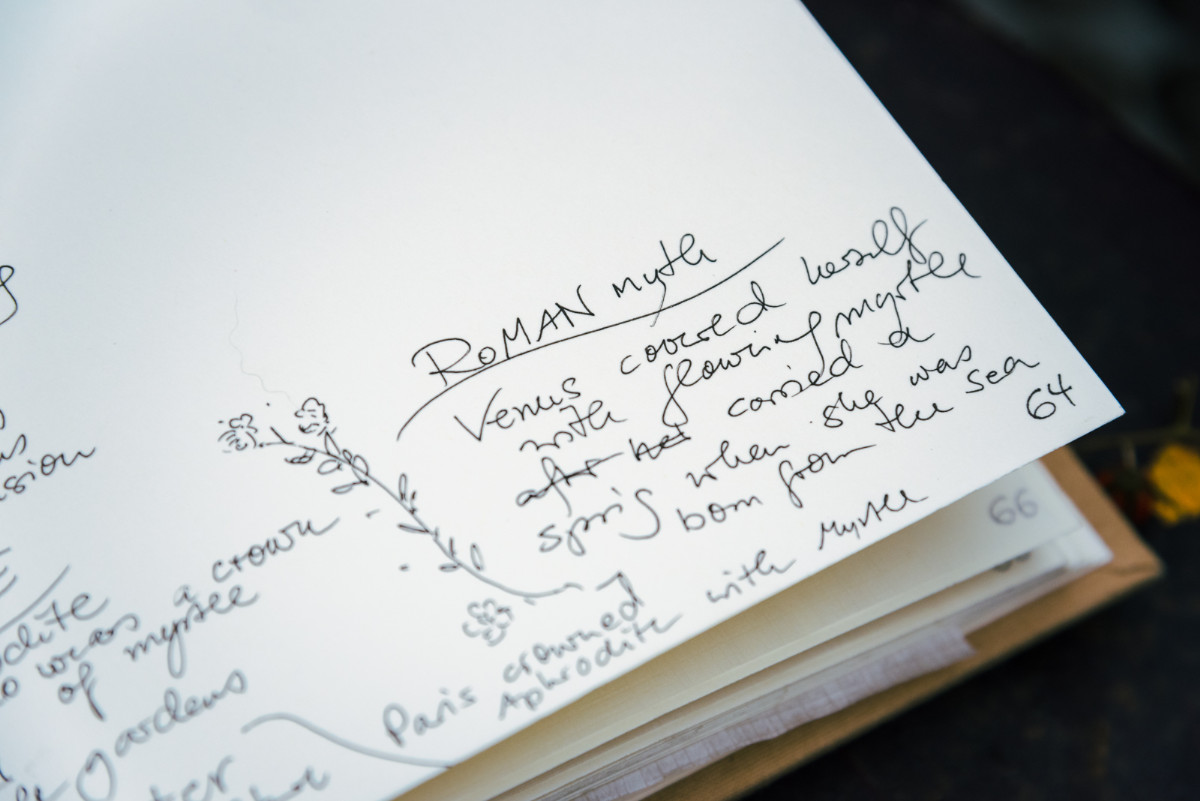 ROMAN myth
Venus covered herself
with flowring myrtle
after her carried a
sprig when she was
born from the sea
64
66
Paris crowned
Aphrodite with Myrtle
a crown
wears
of myrtle
gardens